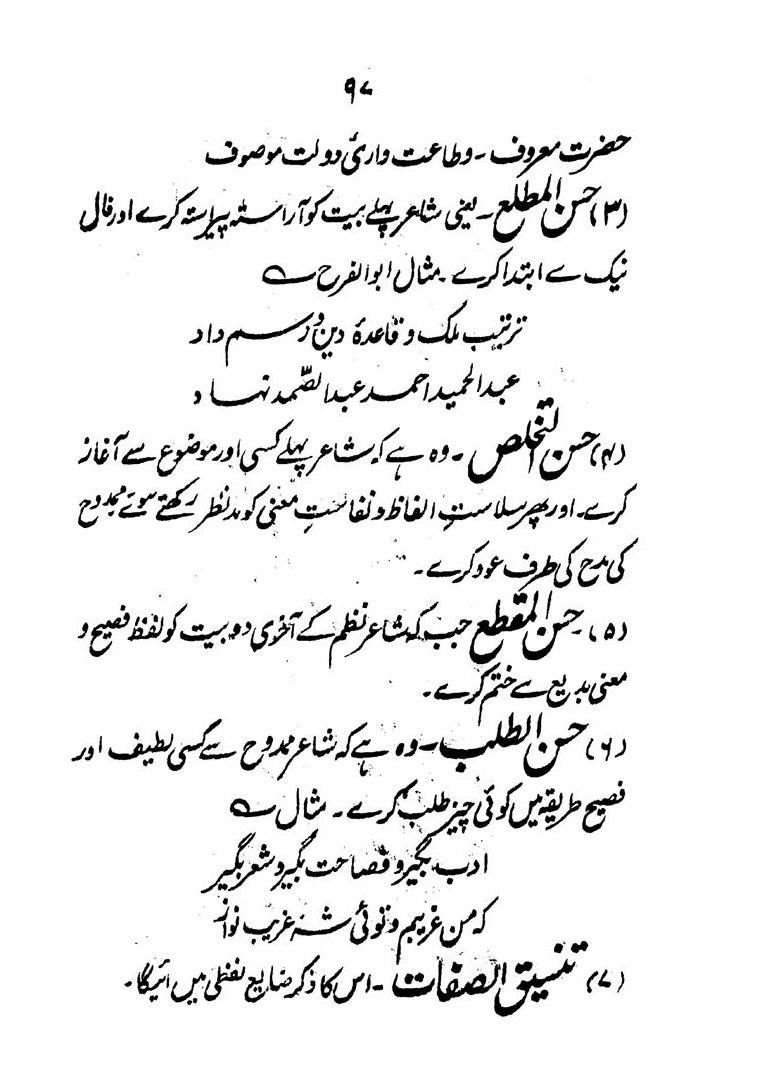 ۹۷
حضرت معروف ۔ وطاعت داریٔ دولت موصوف
(۳) حسن المطلع ۔ یعنی شاعر پہلے بیت کو آراستہ پیراستہ کرے اور فال
نیک سے ابتدا کرے ۔ مثال ابوالفرح ؎
ترتیب ملک و قاعدۂ دین و رسم داد
عبدالحمید احمد عبدالصّمد نہاد
(۴) حسن التخلص ۔ وہ ہے کہ شاعر پہلے کسی اور موضوع سے آغاز
کرے ۔ اور پھر سلاستِ الفاظ و نفاستِ معنی کو مدنظر رکھتے ہوئے ممدوح
کی مدح کی طرف عود کرے ۔
(۵) حسن المقطع جب کہ شاعر نظم کے آخری دو بیت کو لفظ فصیح و
معنی بدیع سے ختم کرے ۔
(۶) حسن الطلب ۔ وہ ہے کہ شاعر ممدوح سے کسی لطیف اور
فصیح طریقہ میں کوئی چیز طلب کرے ۔ مثال ؎
ادب بگیر و فصاحت بگیر و شعر بگیر
کہ من غریبم و توئی شہ غریب نواز
(۷) تنسیق الصفات ۔ اس کا ذکر ضایع لفظی میں آئیگا ۔